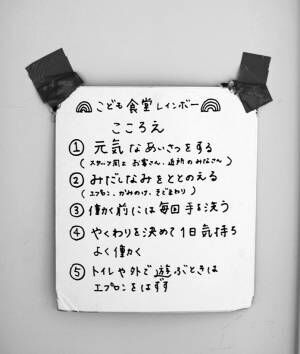 こども食堂レインボー
こころえ
① 元気なあいさつをする
(スタッフ同士 お客さん、近所のみなさん)
② みだしなみをととのえる
(エプロン、かみのけ、そでまわり)
③ 働く前には毎回手を洗う
④ やくわりを決めて1日気持ち
よく働く
⑤ トイレや外で遊ぶときは
エプロンをはずす